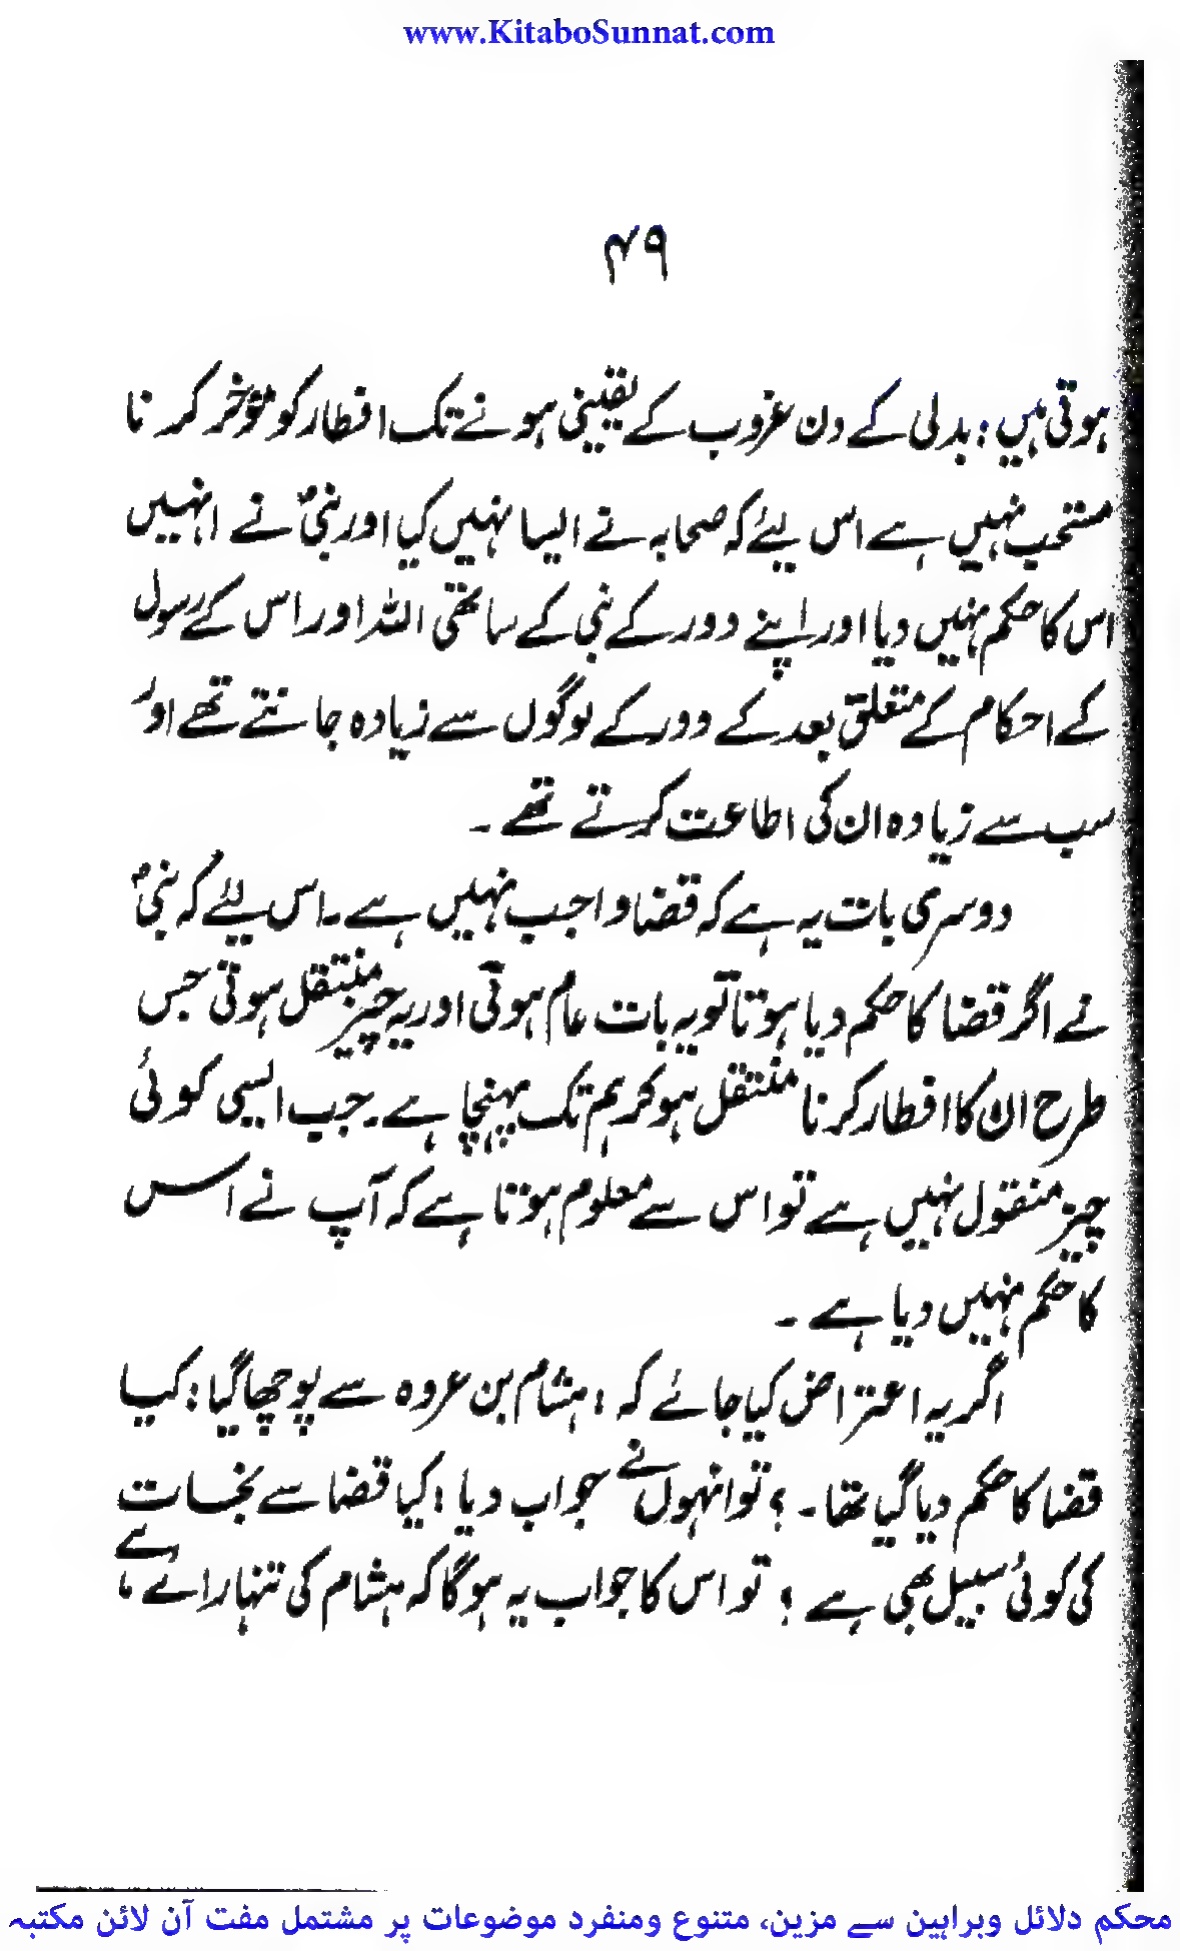 www.KitaboSunnat.com
۴۹
ہوتی ہیں: بدلی کے دن غروب کے یقینی ہونے تک افطار کو مؤخر کرنا
مستحب نہیں ہے اس لیئے کہ صحابہ نے ایسا نہیں کیا اور نبیؐ نے انہیں
اس کا حکم نہیں دیا اور اپنے دور کے نبی کے ساتھی اللہ اور اس کے رسول
کے احکام کے متعلق بعد کے دور کے لوگوں سے زیادہ جانتے تھے اور
سب سے زیادہ ان کی اطاعت کرتے تھے ۔
دوسری بات یہ ہے کہ قضا واجب نہیں ہے ۔ اس لیئے کہ نبیؐ
نے اگر قضا کا حکم دیا ہوتا تو یہ بات عام ہوتی اور یہ چیز منتقل ہوتی جس
طرح ان کا افطار کرنا منتقل ہو کر ہم تک پہنچا ہے ۔ جب ایسی کوئی
چیز منقول نہیں ہے تو اس سے معلوم ہوتا ہے کہ آپ نے اس
کا حکم نہیں دیا ہے ۔
اگر یہ اعتراض کیا جائے کہ : ہشام بن عروہ سے پوچھا گیا : کیا
قضا کا حکم دیا گیا تھا ۔ ؟ تو انہوں نے جواب دیا : کیا قضا سے نجات
کی کوئی سبیل بھی ہے ؟ تو اس کا جواب یہ ہوگا کہ ہشام کی تنہا رائے ہے ،
محکم دلائل وبراہین سے مزین، متنوع ومنفرد موضوعات پر مشتمل مفت آن لائن مکتبہ